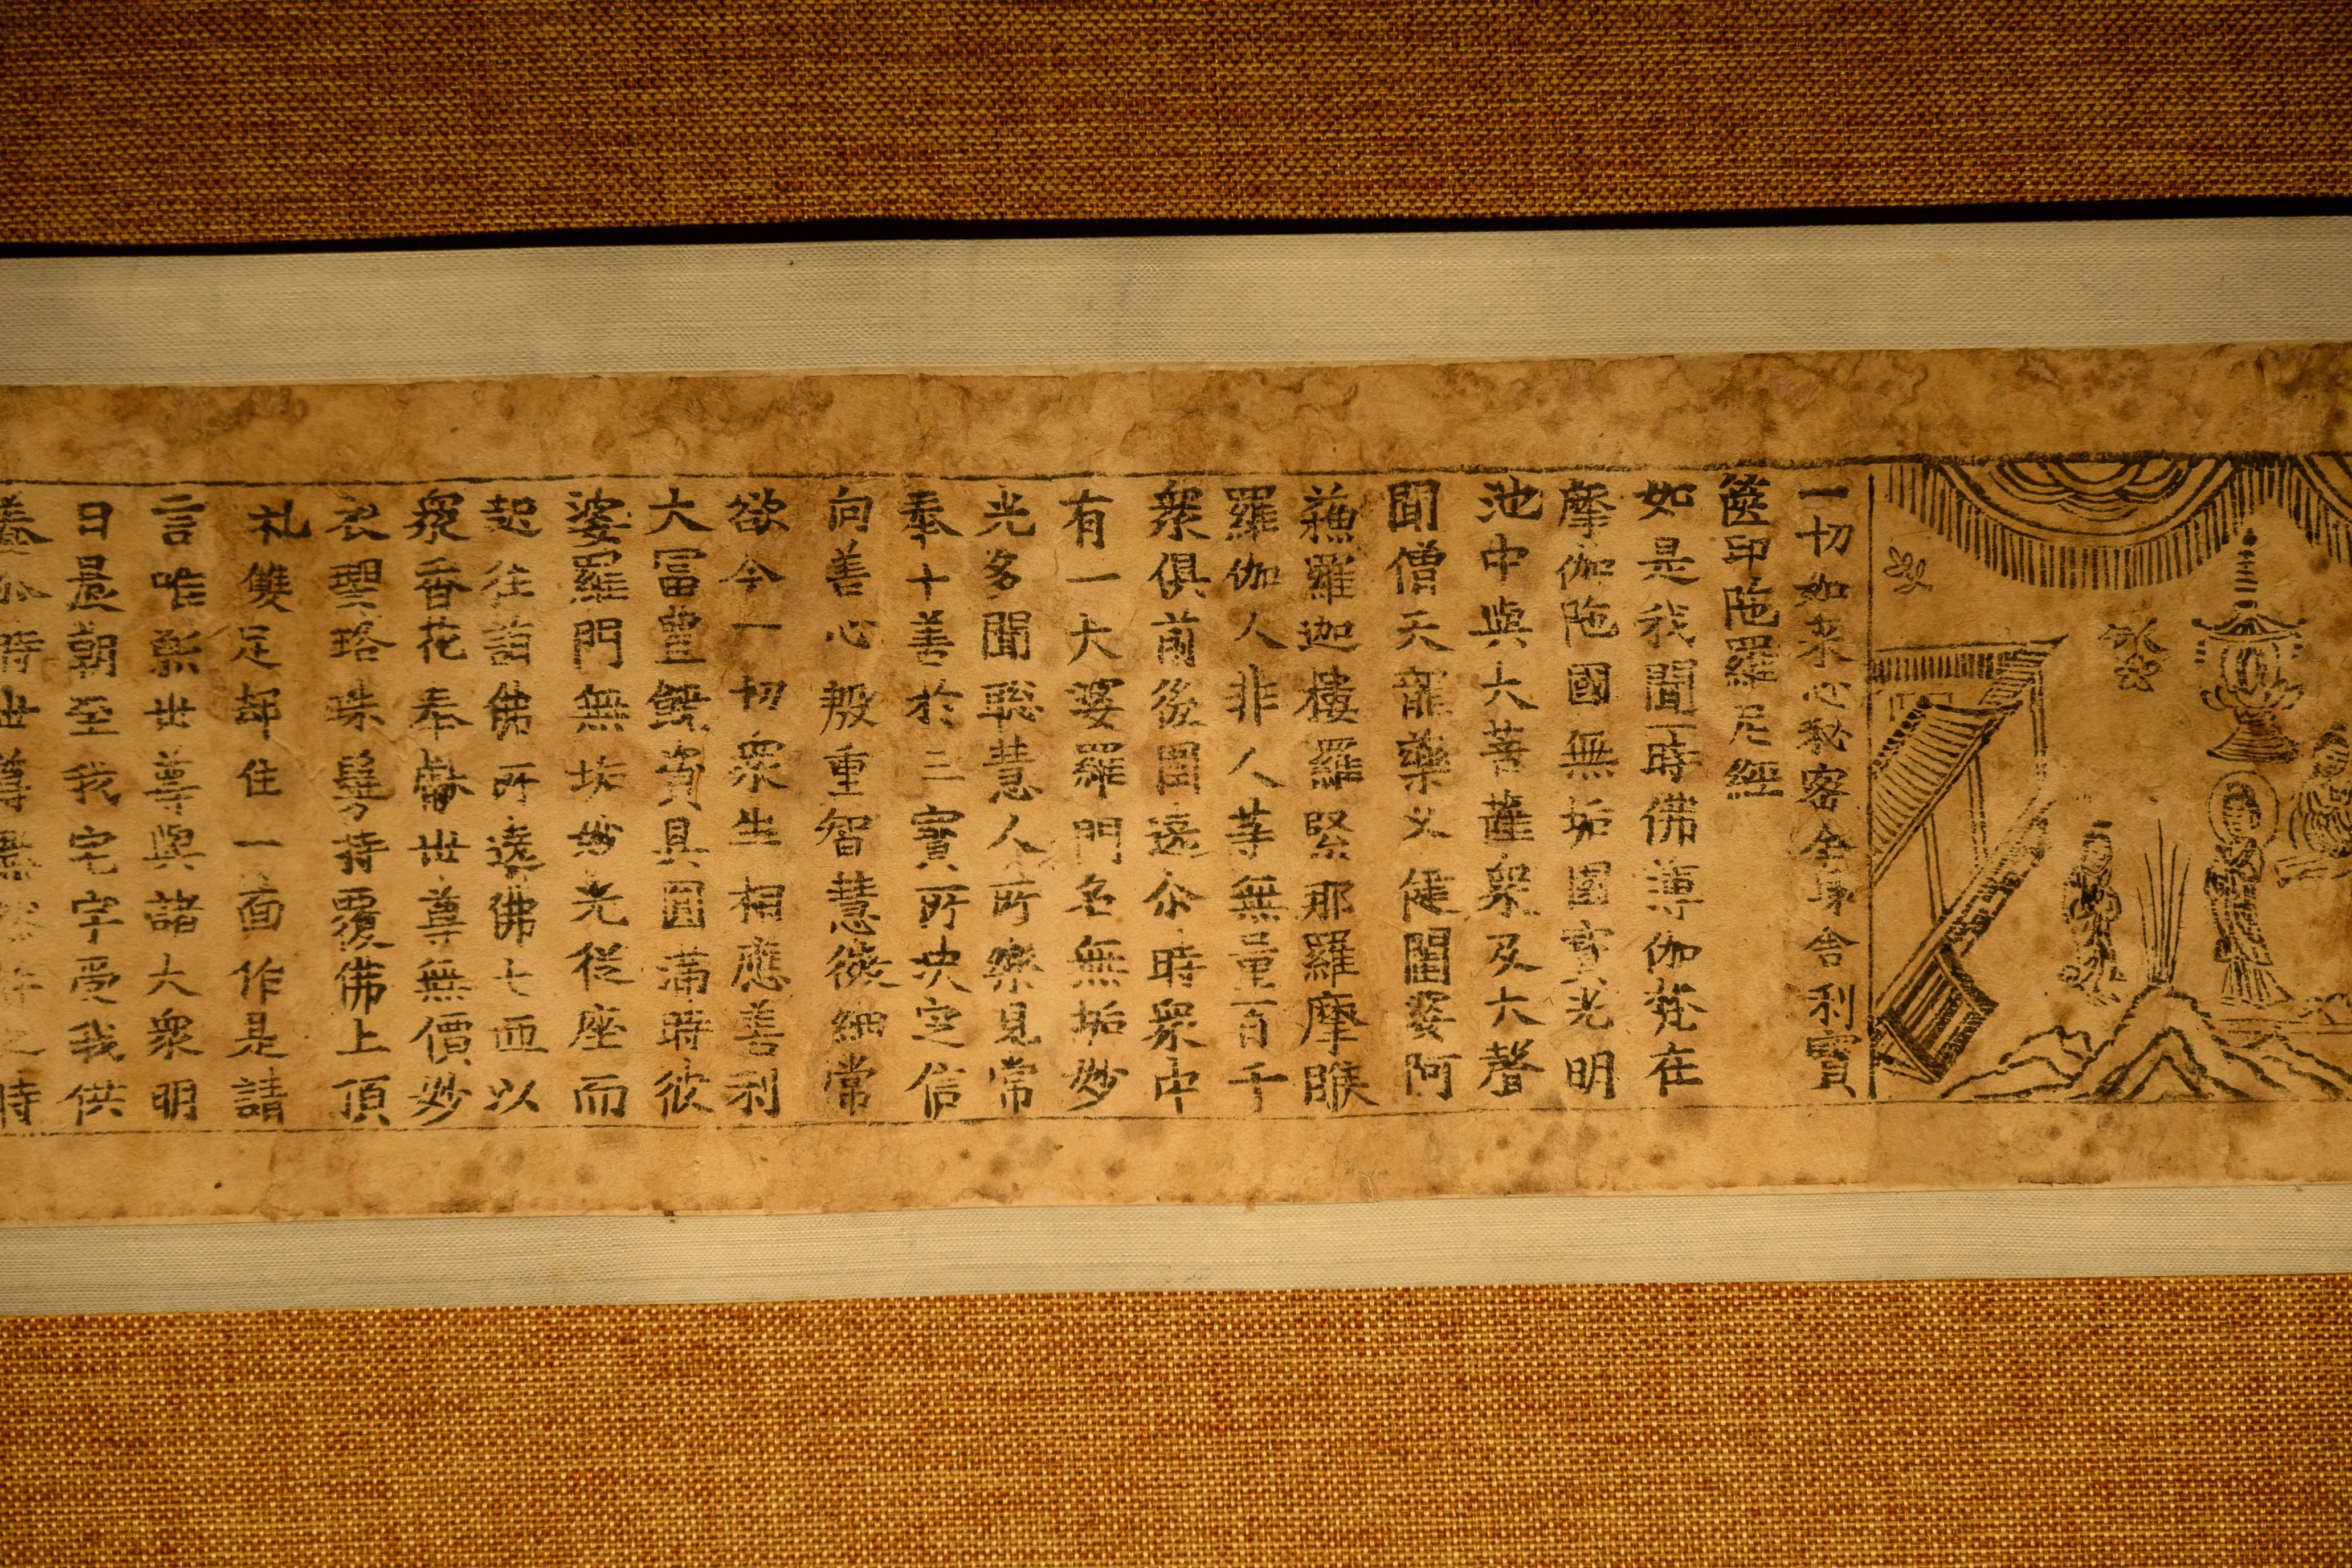 一切如來心秘密全身舍利寶
篋印陁羅尼經
如是我聞一時佛薄伽梵在
摩伽陁國無垢園寳光明
池中與大菩薩衆及大聲
聞僧天龍藥叉健闥婆阿
蘓羅迦樓羅緊那羅摩睺
羅伽人非人等無量百千
衆俱前後圍遶尒時衆中
有一大婆羅門名無垢妙
光多聞聡慧人所樂見常
奉十善於三寳所决定信
向善心殷重智慧微細常
欲令一切衆生相應善利
大冨豊饒資具圓滿時彼
婆羅門無垢妙光從座而
起往詣佛所遶佛七匝以
衆香花奉獻世尊無價妙
衣瓔珞珠鬘持覆佛上頂
礼雙足却住一面作是請
言唯願世尊與諸大衆明
日晨朝至我宅宇受我供
養尒時世尊黙然許之時